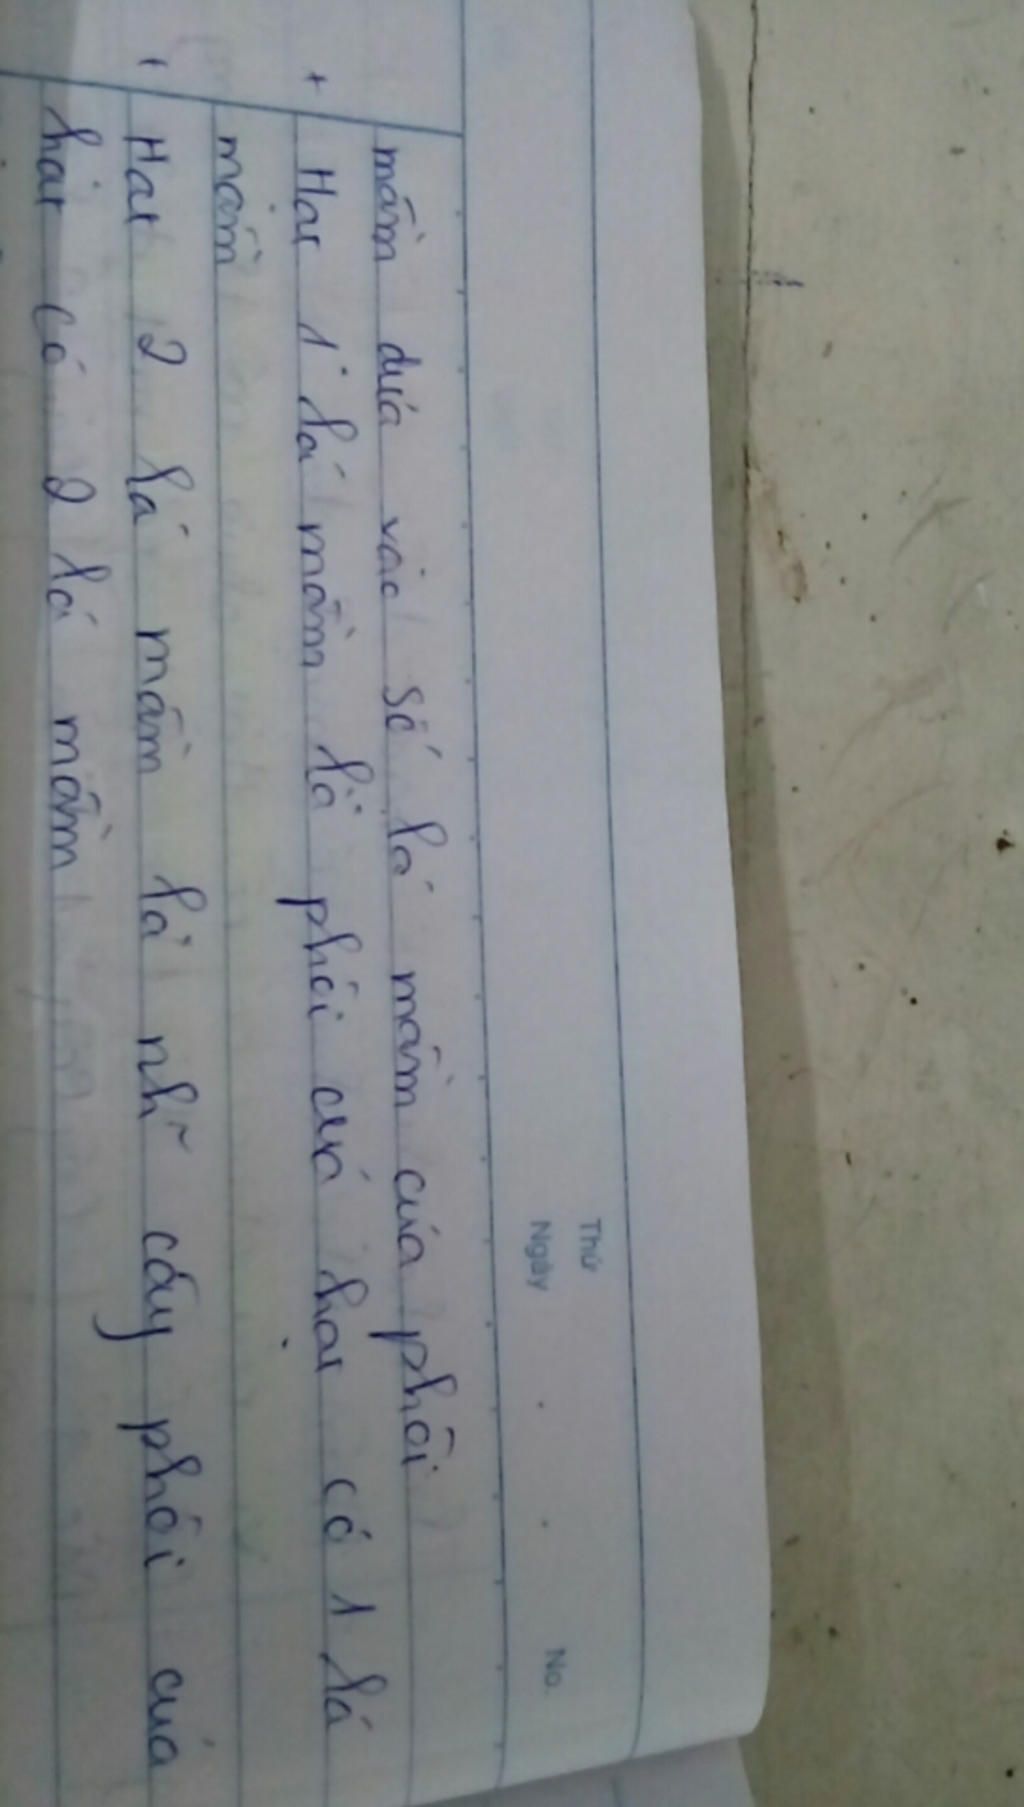 Thứ
Ngày No.
mầm dựa vào số lá mầm của phôi
+ Hạt 1 lá mầm là phôi của hạt có 1 lá
mầm
+ Hạt 2 lá mầm là những cây phôi của
hạt có 2 lá mầm